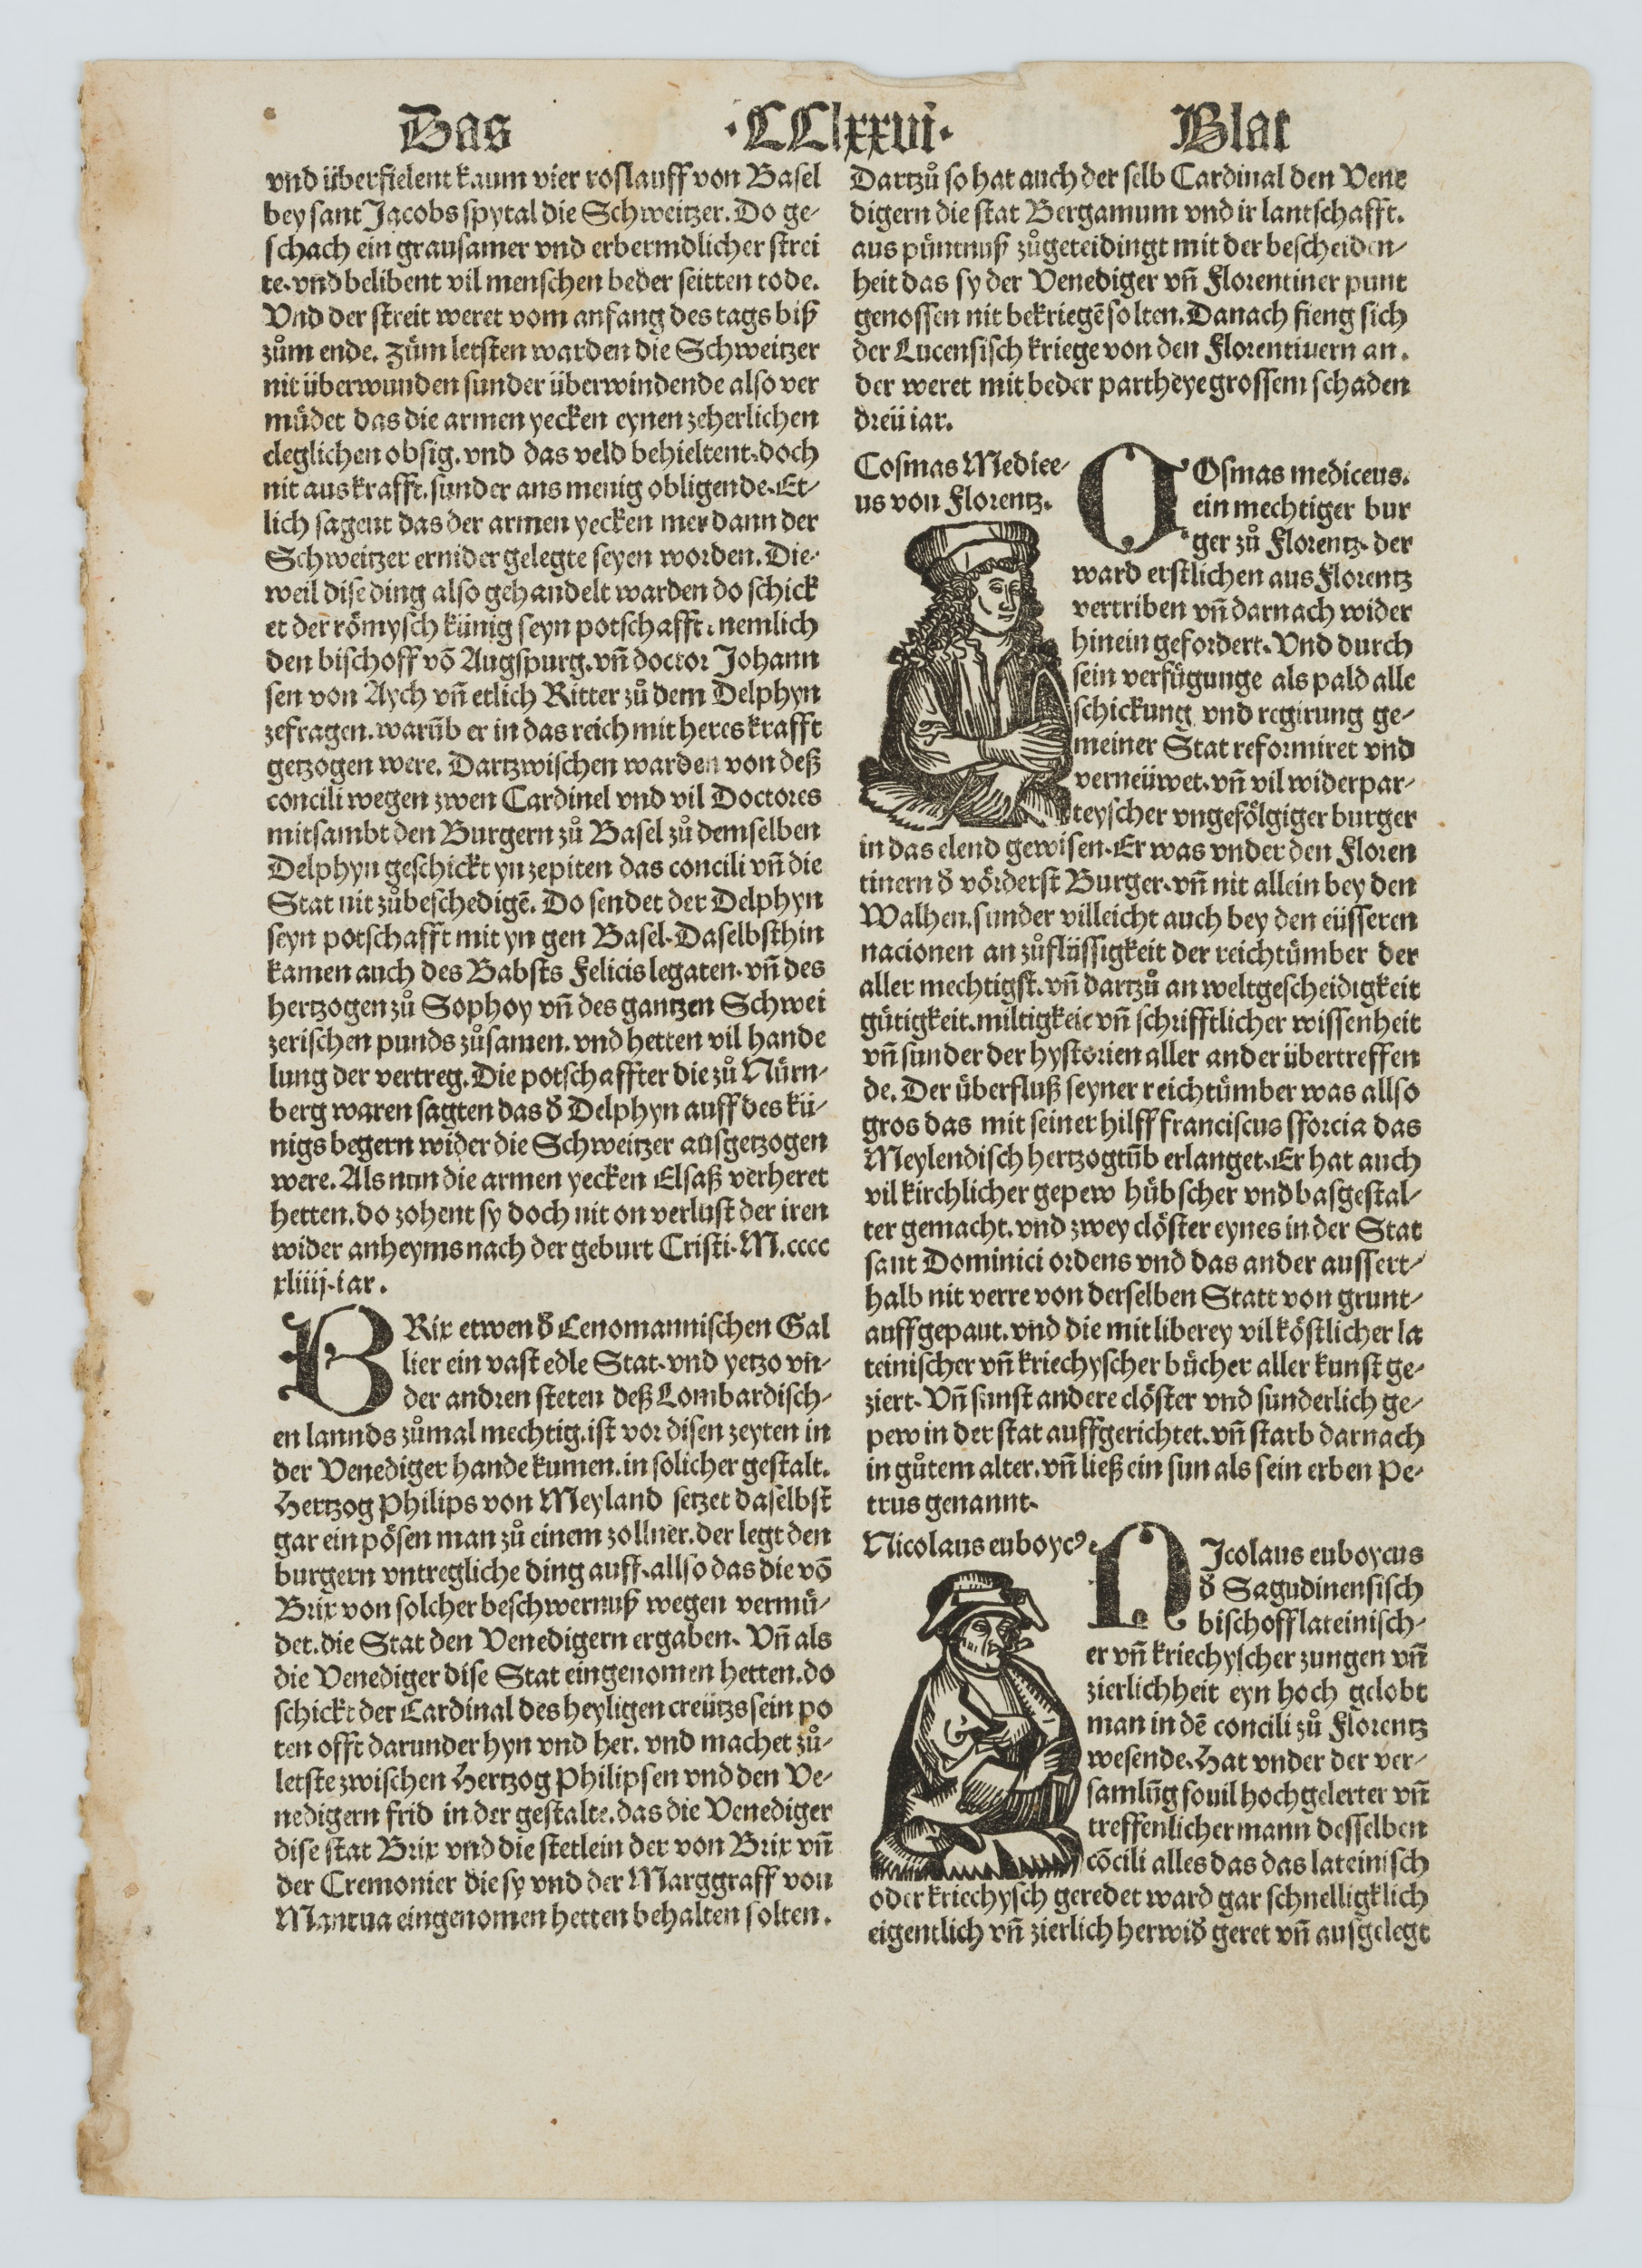 Das ·CClxxvi· Blat
vnd überfielent kaum vier roslauff von Basel
bey sant Jacobs spytal die Schweitzer. Do ge-
schach ein grausamer vnd erbermdlicher strei
te. vnd belibent vil menschen beder seitten tode.
Vnd der streit weret vom anfang des tags biß
zům ende. Zům letsten warden die Schweitzer
nit überwunden sunder überwindende also ver
müdet das die armen yecken eynen zeherlichen
cleglichen obsig. vnd das veld behieltent. doch
nit aus krafft. sunder ans menig obligende. Et-
lich sagent das der armen yecken mer dann der
Schweitzer ernider gelegte seyen worden. Die-
weil dise ding also gehandelt warden do schick
et der römysch künig seyn potschafft. nemlich
den bischoff võ Augspurg. vñ doctor Johann
sen von Aych vñ etlich Ritter zů dem Delphyn
zefragen. warūb er in das reich mit heres krafft
getzogen were. Dartzwischen warden von deß
concili wegen zwen Cardinel vnd vil Doctores
mitsambt den Burgern zů Basel zů demselben
Delphyn geschickt yn zepiten das concili vñ die
Stat nit zůbeschedigē. Do sendet der Delphyn
seyn potschafft mit yn gen Basel. Daselbsthin
kamen auch des Babsts Felicis legaten. vñ des
hertzogen zů Sophoy vñ des gantzen Schwei
zerischen punds zůsamen. vnd hetten vil hande
lung der vertreg. Die potschaffter die zů Nürn-
berg waren sagten das d̕ Delphyn auff des kü-
nigs begern wider die Schweitzer ausgetzogen
were. Als nun die armen yecken Elsaß verheret
hetten. do zohent sy doch nit on verlust der iren
wider anheyms nach der geburt Cristi. M.cccc
xliiij. iar.
BRix etwen d̕ Cenomannischen Gal
lier ein vast edle Stat. vnd yetzo vn-
der andren steten deß Lombardisch-
en lannds zůmal mechtig. ist vor disen zeyten in
der Venediger hande kumen. in solicher gestalt.
Hertzog Philips von Meyland setzet daselbst
gar ein pösen man zů einem zollner. der legt den
burgern vntregliche ding auff. allso das die võ
Brix von solcher beschwernuß wegen vermü-
det. die Stat den Venedigern ergaben. Vñ als
die Venediger dise Stat eingenomen hetten. do
schickt der Cardinal des heyligen creützs sein po
ten offt darunder hyn vnd her. vnd machet zů-
letste zwischen Hertzog Philipsen vnd den Ve-
nedigern frid in der gestalte. das die Venediger
dise stat Brix vnd die stetlein der von Brix vñ
der Cremonier die sy vnd der Marggraff von
Mantua eingenomen hetten behalten solten.
Dartzů so hat auch der selb Cardinal den Vene
digern die stat Bergamum vnd ir lantschafft.
aus püntnuß zůgeteidingt mit der bescheiden-
heit das sy der Venediger vñ Florentiner punt
genossen nit bekriegē solten. Danach fieng sich
der Lucensisch kriege von den Florentinern an.
der weret mit beder partheye grossem schaden
dreü iar.
Cosmas Medice-
us von Florentz.
COsmas mediceus.
ein mechtiger bur
ger zů Florentz. der
ward erstlichen aus Florentz
vertriben vñ darnach wider
hinein gefordert. Vnd durch
sein verfügunge als pald alle
schickung vnd regirung ge-
meiner Stat reformiret vnd
verneüwet. vñ vil widerpar-
teyscher vngefölgiger burger
in das elend gewisen. Er was vnder den Floren
tinern d̕ vörderst Burger. vñ nit allein bey den
Walhen. sunder villeicht auch bey den eüsseren
nacionen an zůflüssigkeit der reichtümber der
aller mechtigst. vñ dartzů an weltgescheidigkeit
gütigkeit. miltigkeit vñ schrifftlicher wissenheit
vñ sunder der hystorien aller ander übertreffen
de. Der überfluß seyner reichtümber was allso
gros das mit seiner hilff franciscus sforcia das
Meylendisch hertzogtūb erlanget. Er hat auch
vil kirchlicher gepew hübscher vnd basgestal-
ter gemacht. vnd zwey clöster eynes in der Stat
sant Dominici ordens vnd das ander aussert-
halb nit verre von derselben Statt von grunt-
auff gepaut. vnd die mit liberey vil köstlicher la
teinischer vñ kriechyscher bücher aller kunst ge-
ziert. Vñ sunst andere clöster vnd sunderlich ge-
pew in der stat auffgerichtet. vñ starb darnach
in gůtem alter. vñ ließ ein sun als sein erben Pe-
trus genannt.
Nicolaus euboycꝰ
NIcolaus euboycus
d̕ Sagudinensisch
bischoff lateinisch-
er vñ kriechyscher zungen vñ
zierlichheit eyn hoch gelobt
man in dē concili zů Florentz
wesende. Hat vnder der ver-
samlūg souil hochgelerter vñ
treffenlicher mann desselben
cōcili alles das das lateinisch
oder kriechysch geredet ward gar schnelligklich
eigentlich vñ zierlich herwid̕ geret vñ ausgelegt